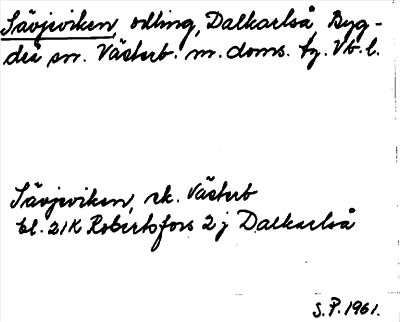 Sävjeviken, odling, Dalkarlså Byg-
deå sn. Västerb. m. doms. fg. Vb. l.
Sävjeviken, ek. Västerb
bl. 21K Robertsfors 2 j Dalkarlså
S.P. 1961.